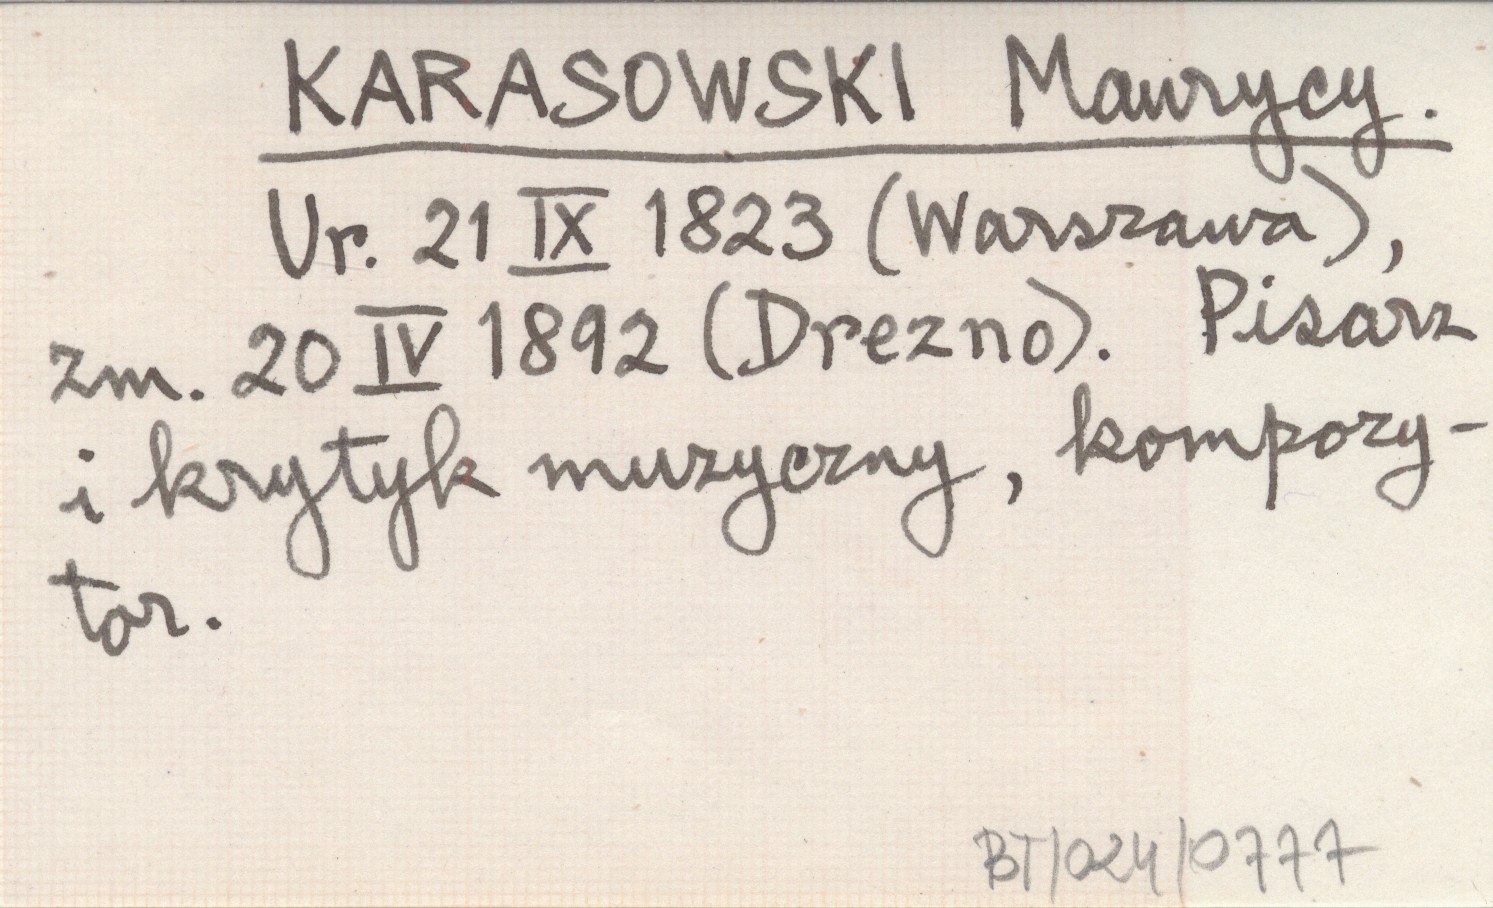 KARASOWSKI Maurycy.
Ur. 21 IX 1823 (Warszawa),
zm. 20 IV 1892 (Drezno). Pisarz
i krytyk muzyczny, kompozy-
tor.
BT/024/0777